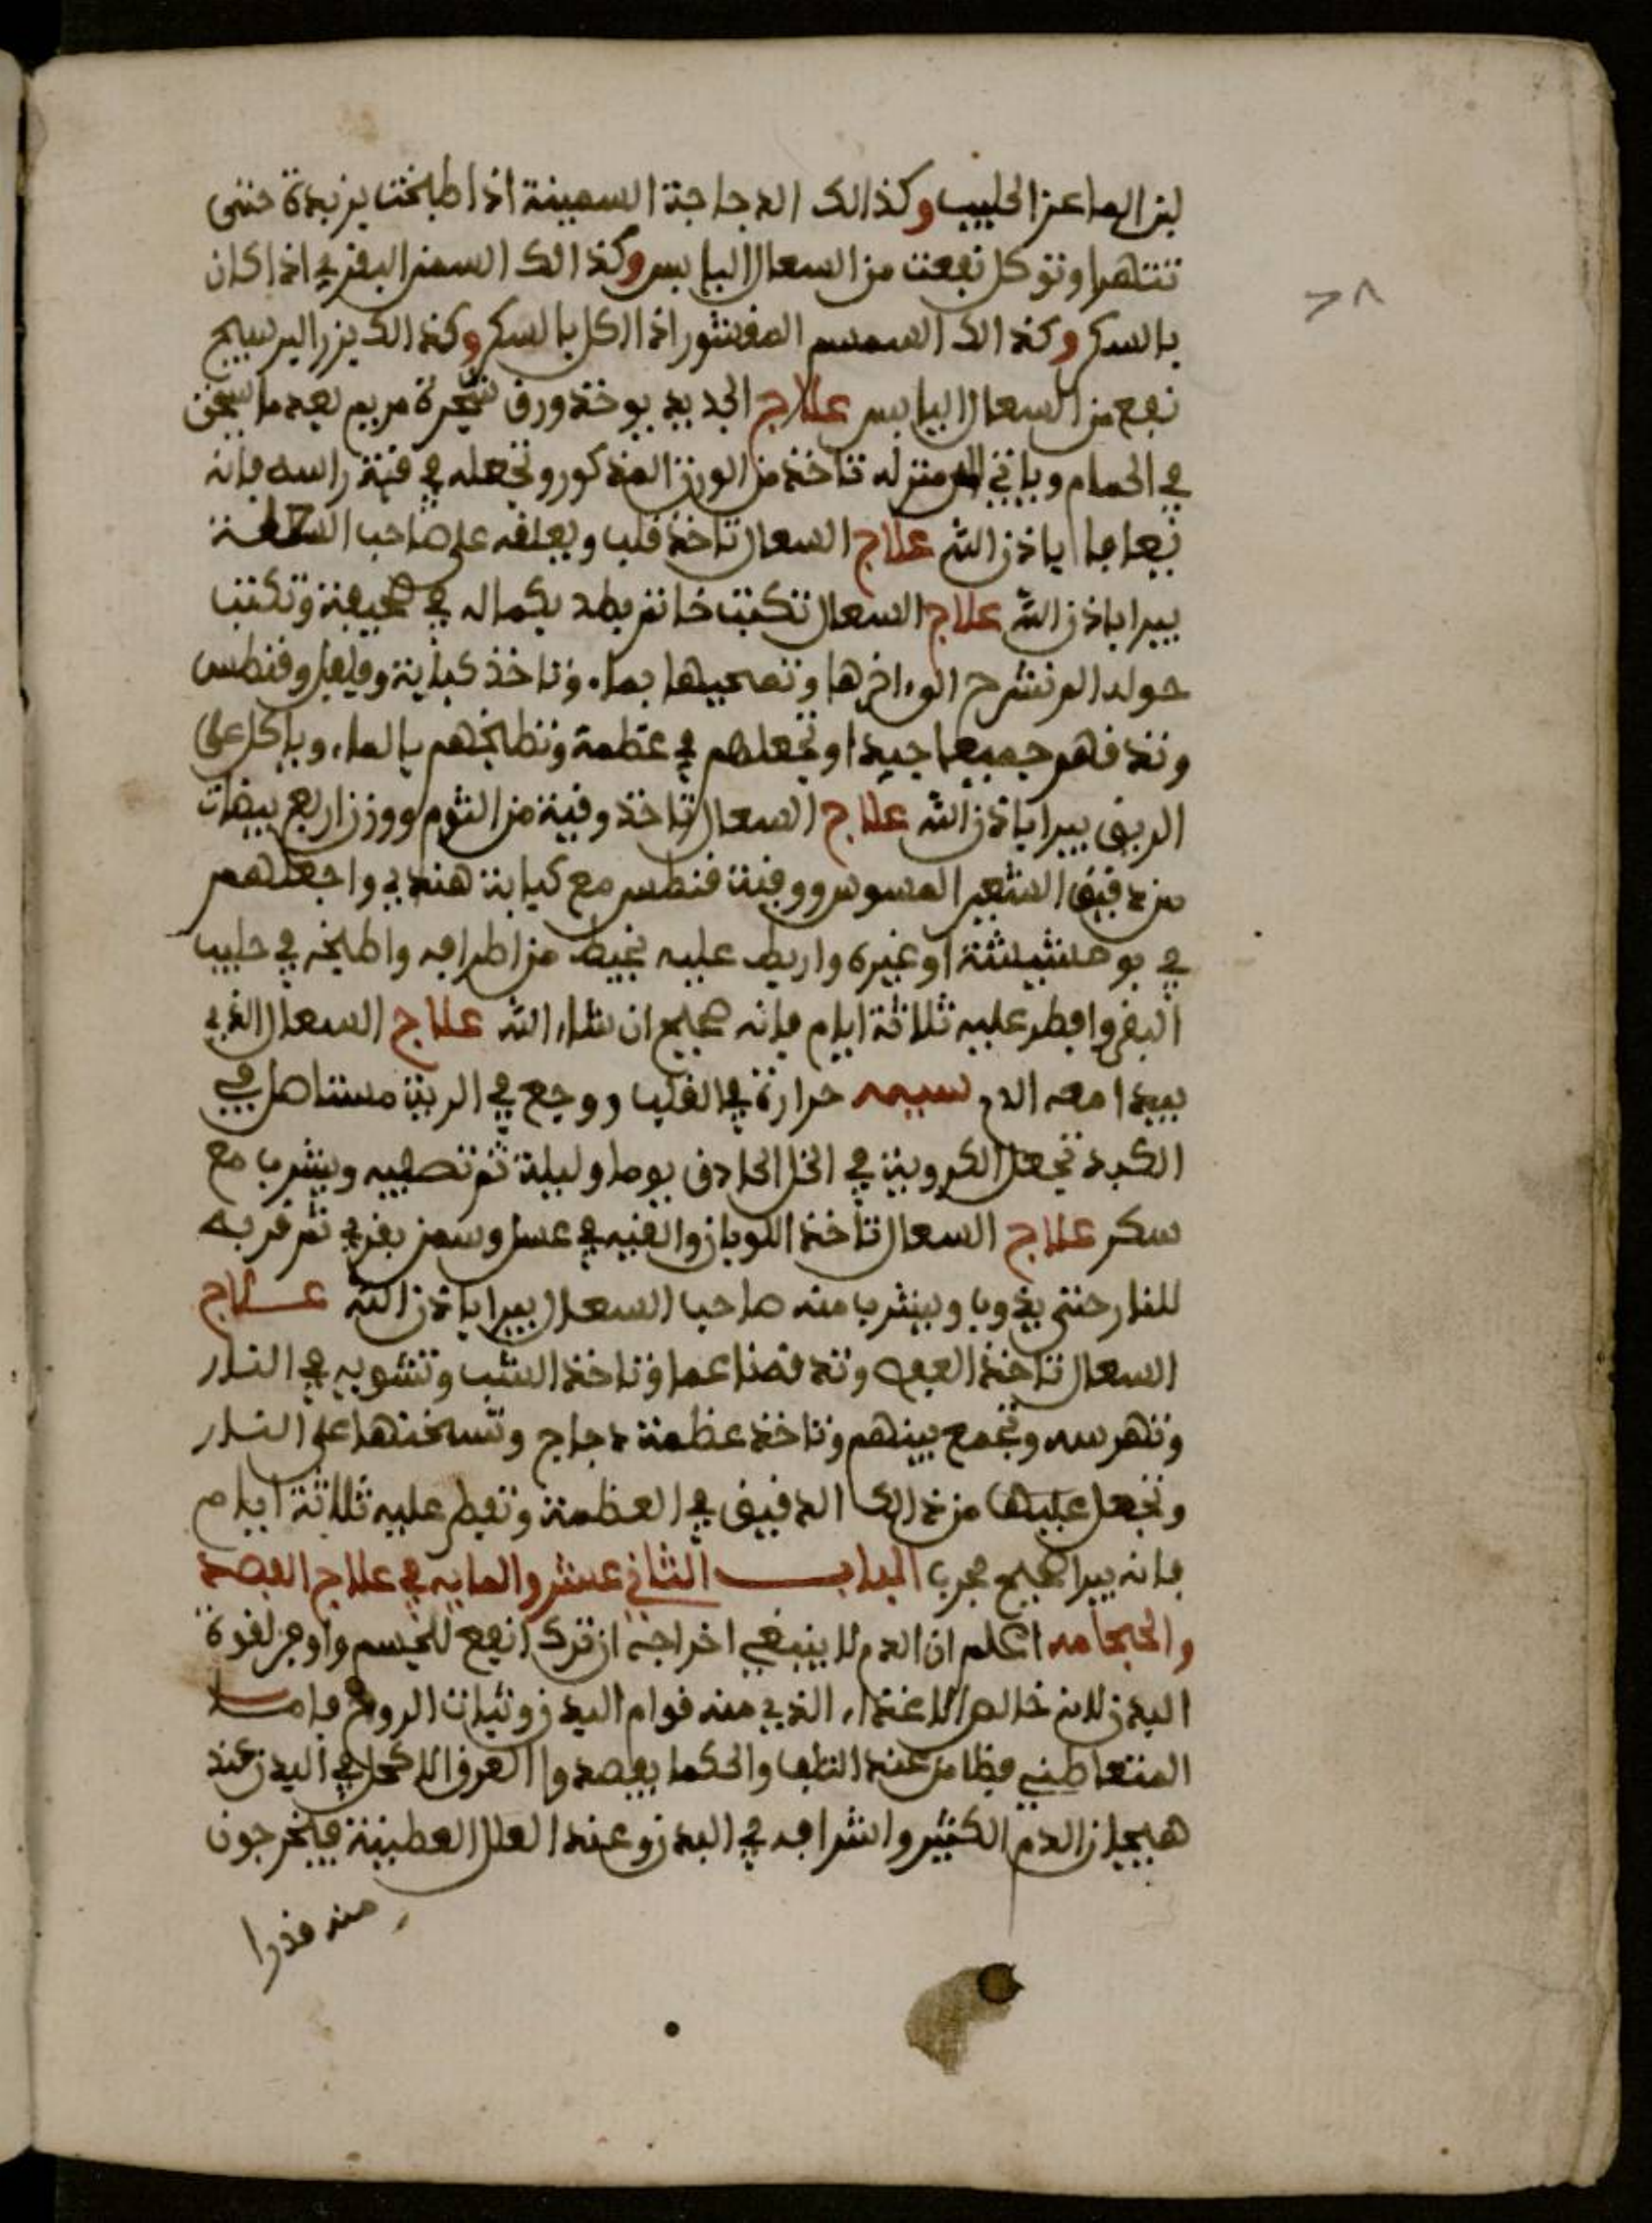 لبن الماعز الحليب وكذالك الدجاجة السمينة اذا طبخت بزبدة حتى
تتهرا وتوكل نفعت من السعال اليابس وكذالك السمن البقري اذا كان
بالسكر وكذالك السمسم المقشور اذا اكل بالسكر وكذالك بزر
نفع من السعال اليابس علاج الجديد يوخذ ورق شجرة مريم بعدما
في الحمام ويأتي الى منزله تاخذ من الورق المذكور وتجعله في قبة راسه فانه
يعافا باذن الله علاج السعال تاخذ قلب ويعلقه على صاحب
يبرا باذن الله علاج السعال تكتب خاتم بطد بكماله في صحيفة وتكتب
حوله الم نشرح الى اخرها وتمحيها بماء وتاخذ كبابة وفلفل وقنطس
وتدقهم جميعا جيدا وتجعلهم في عظمة وتطبخهم بالماء وياكل على
الريق يبرا باذن الله علاج السعال تاخذ وقية من الثوم ووزن اربع بيضات
من دقيق الشعير المسوس ووقية قنطس مع كبابة هندي واجعلهم
في بوحشيشة او غيره واربط عليه بخيط من اطرافه واطبخه في حليب
البقر وافطر عليه ثلاثة ايام فانه صحيح ان شاء الله علاج السعال الذي
يبدا معه الدم سببه حرارة في القلب ووجع في الرية مستاهل في
الكبد تجعل الكروية في الخل الحاذق يوما وليلة ثم تصفيه ويشرب مع
سكر علاج السعال تاخذ اللوبان والقيه في عسل وسمن بقري ثم قربه
للنار حتى يذوب ويشرب منه صاحب السعال يبرا باذن الله علاج
السعال تاخذ العفص وتدقه ناعما وتاخذ الشب وتشويه في النار
وتهرسه وتجمع بينهم وتاخذ عظمة دجاج وتسخنها على النار
وتجعل عليها من ذالك الدقيق في العظمة وتفطر عليه ثلاثة ايام
فانه يبرا صحيح مجرب الباب الثاني عشر والمايه في علاج الفصد
والحجامه اعلم ان الدم لا ينبغي اخراجه ان ترك انفع للجسم واوفر لقوة
البدن لانه خالص الاغذاء الذي منه قوام البدن وثبات الروح فاما
عند والحكما يفصدوا العرق الاكحل في اليد عند
هيجان الدم الكثير واشرافه في البدن وعند العلل فيخرجون
منه قدرا